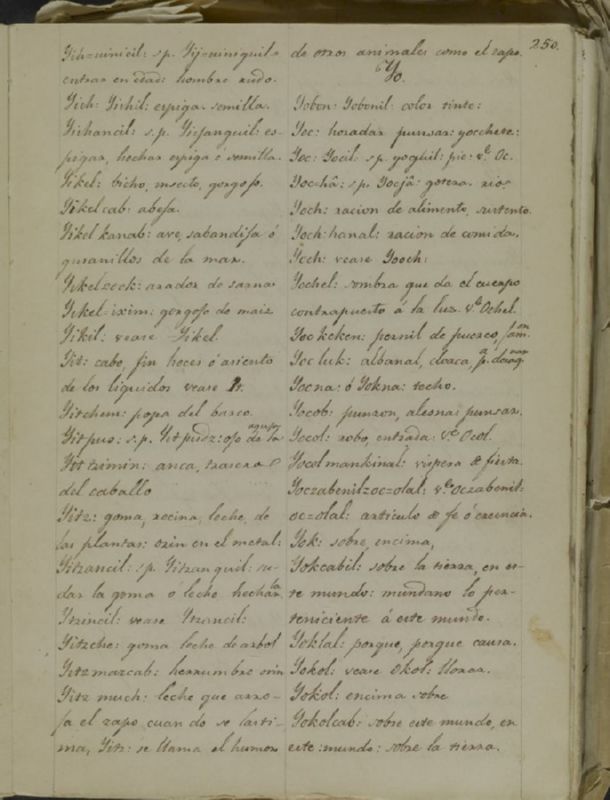 250.
Yih=uinicil: s.p. Yij=uinisquil=
entrar en edad: hombre rudo.
Yich: Yichil: espiga. semilla.
Yihancil: s.p. Yifanquil: es-
pigar, hechar espiga ó semilla.
Yikel: bicho, insecto, gorgojo.
Yikel cab: abeja.
Yikel kanab: ave, sabandija ó
gusanillos de la mar.
Yikel=cock: arador de sarna
Yikel=ixim: gorgojo de maiz
Yikil: vease Yikel.
Yit: cabo, fin heces ó asiento
de los liquidos vease It.
Yitchem: popa del barco.
Yitpus: s.p. Yitpudz: ojo de la
aguja
Yit tzimin: anca, trasera
del caballo
Yitz: goma, recina, leche, de
las plantas: orin en el metal:
Yitzancil: sp. Yitzanquil: su-
dar la goma o leche hecharla
Ytzincil: vease Ytzancil:
Yitzche: goma leche de arbol
Yitz mazcab: herrumbre orin
Yitz much: leche que arro-
ja el zapo cuando se lasti-
ma, Yitz: se llama el humor
de otros animales como el zapo.
Yo.
Yobon: Yobonil: color tinte:
Yoc: horadar punsar: yocchete:
Yoc: Yocil: sp. yoquil: pie: vᵉ Oc.
Yocchâ: s.p. Yocjâ: gotera. rio.
Yoch: racion de alimento, sustento
Yoch=hanal: racion de comida.
Yoch: vease Yooch:
Yochel: sombra que da el cuerpo
contrapuesto á la luz. vᵉ Ochel.
Yoc keken: pernil de puerco, jamon
Yoc luk: albanal, cloaca,
Yocna: ó Yokna: techo.
Yocob: punzon, alesna: punsar.
Yocol: robo, entrada: vᵉ Ocol.
Yocol mankinal: vispera de fiesta
Yoczabenilzoc=olal: vᵉ Oczabenil:
oc=olal: articulo de fe ó creencia.
Yok: sobre, encima,
Yokcabil: sobre la tierra, en es-
te mundo: mundano lo per-
teniciente á este mundo.
Yoklal: porque, porque causa.
Yokol: vease Okol: llorar.
Yokol: encima sobre
Yokolcab: sobre este mundo, en
este: mundo: sobre la tierra.